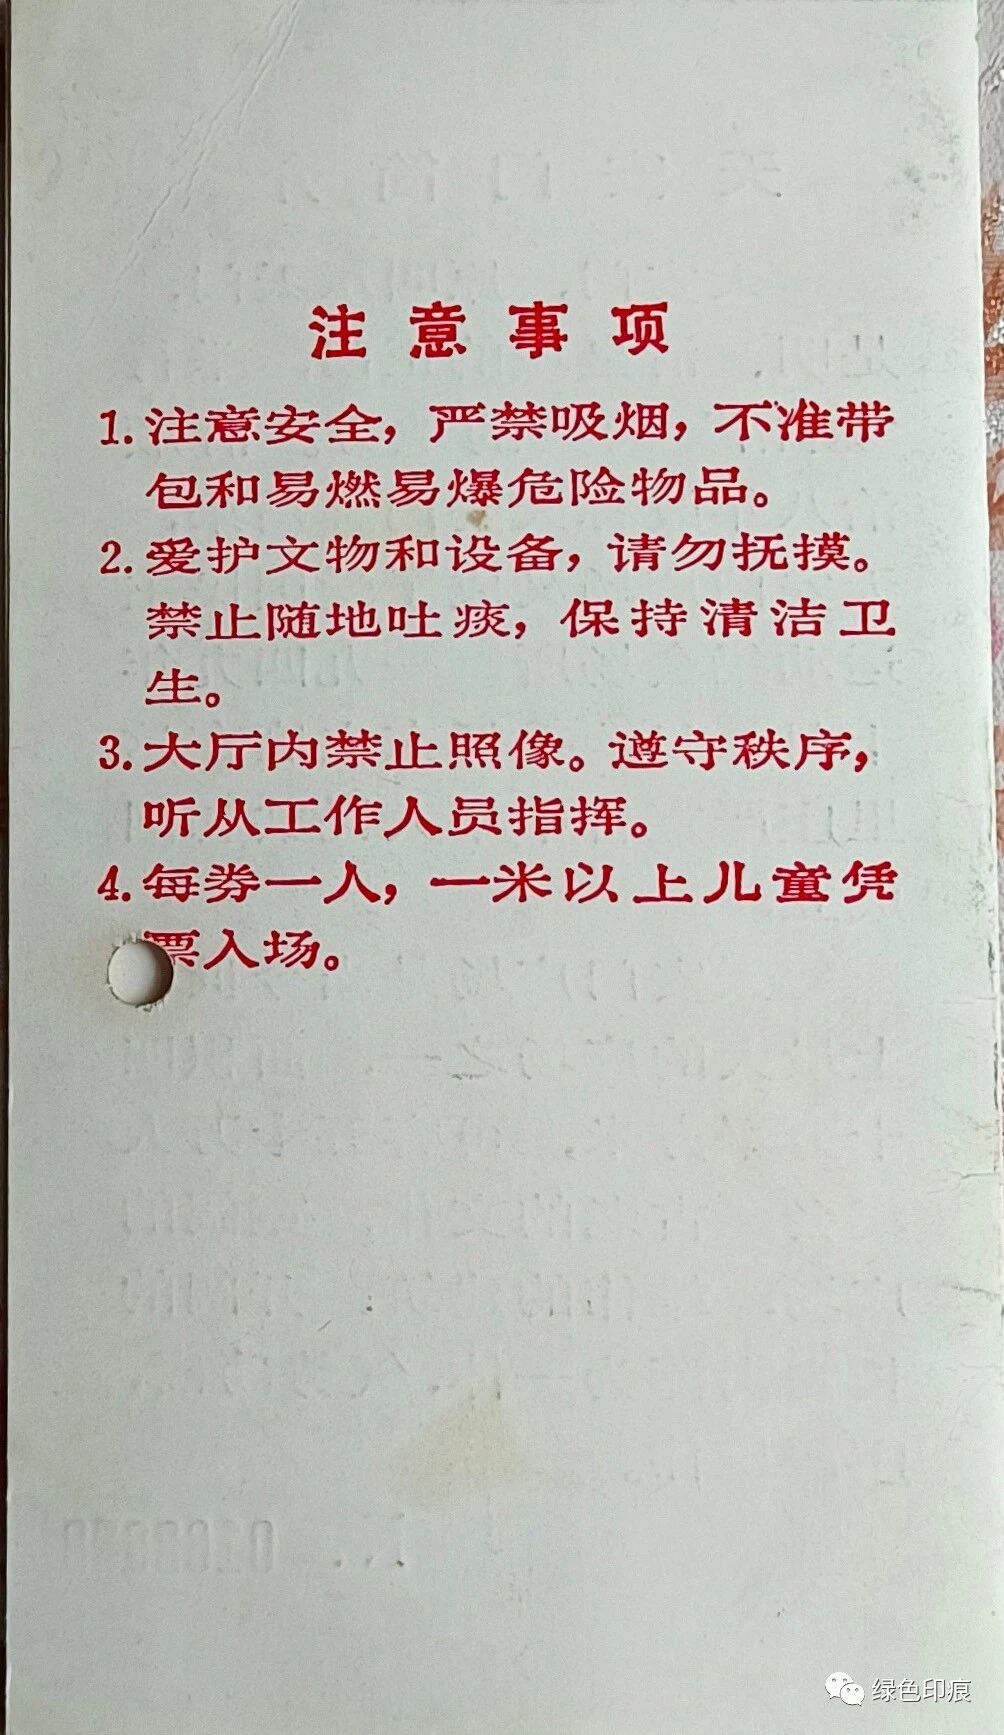 注意事项
1. 注意安全，严禁吸烟，不准带
包和易燃易爆危险物品。
2. 爱护文物和设备，请勿抚摸。
禁止随地吐痰，保持清洁卫
生。
3. 大厅内禁止照像。遵守秩序，
听从工作人员指挥。
4. 每券一人，一米以上儿童凭
票入场。
绿色印痕